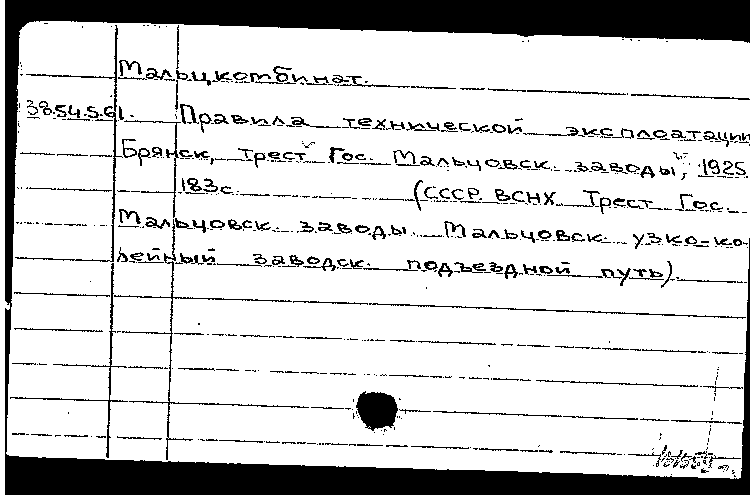 Мальцкомбинат.
38.54.5.61. Правила технической эксплоатации
Брянск, Трест Гос. Мальцовск. заводы, 1925
183с. (СССР. ВСНХ Трест Гос.
Мальцовск. заводы. Мальцовск. узко-ко-
лейный заводск. подъездной путь).